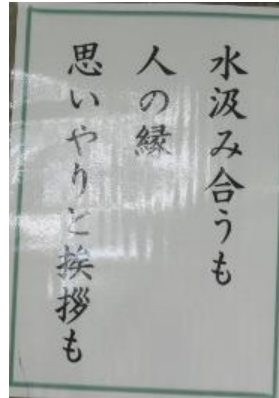 水汲み合うも
人の縁
思いやりと挨拶も